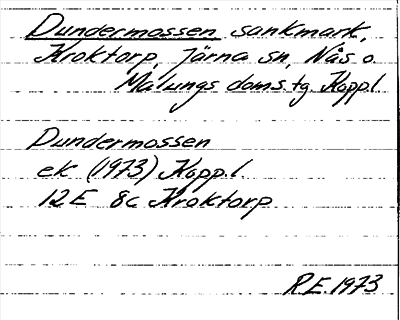 Dundermossen sankmark,
Kroktorp, Järna sn, Nås o
Malungs doms.tg Kopp.l.
Dundermossen
ek (1973) Kopp.l.
12E 8c Kroktorp
R.E. 1973